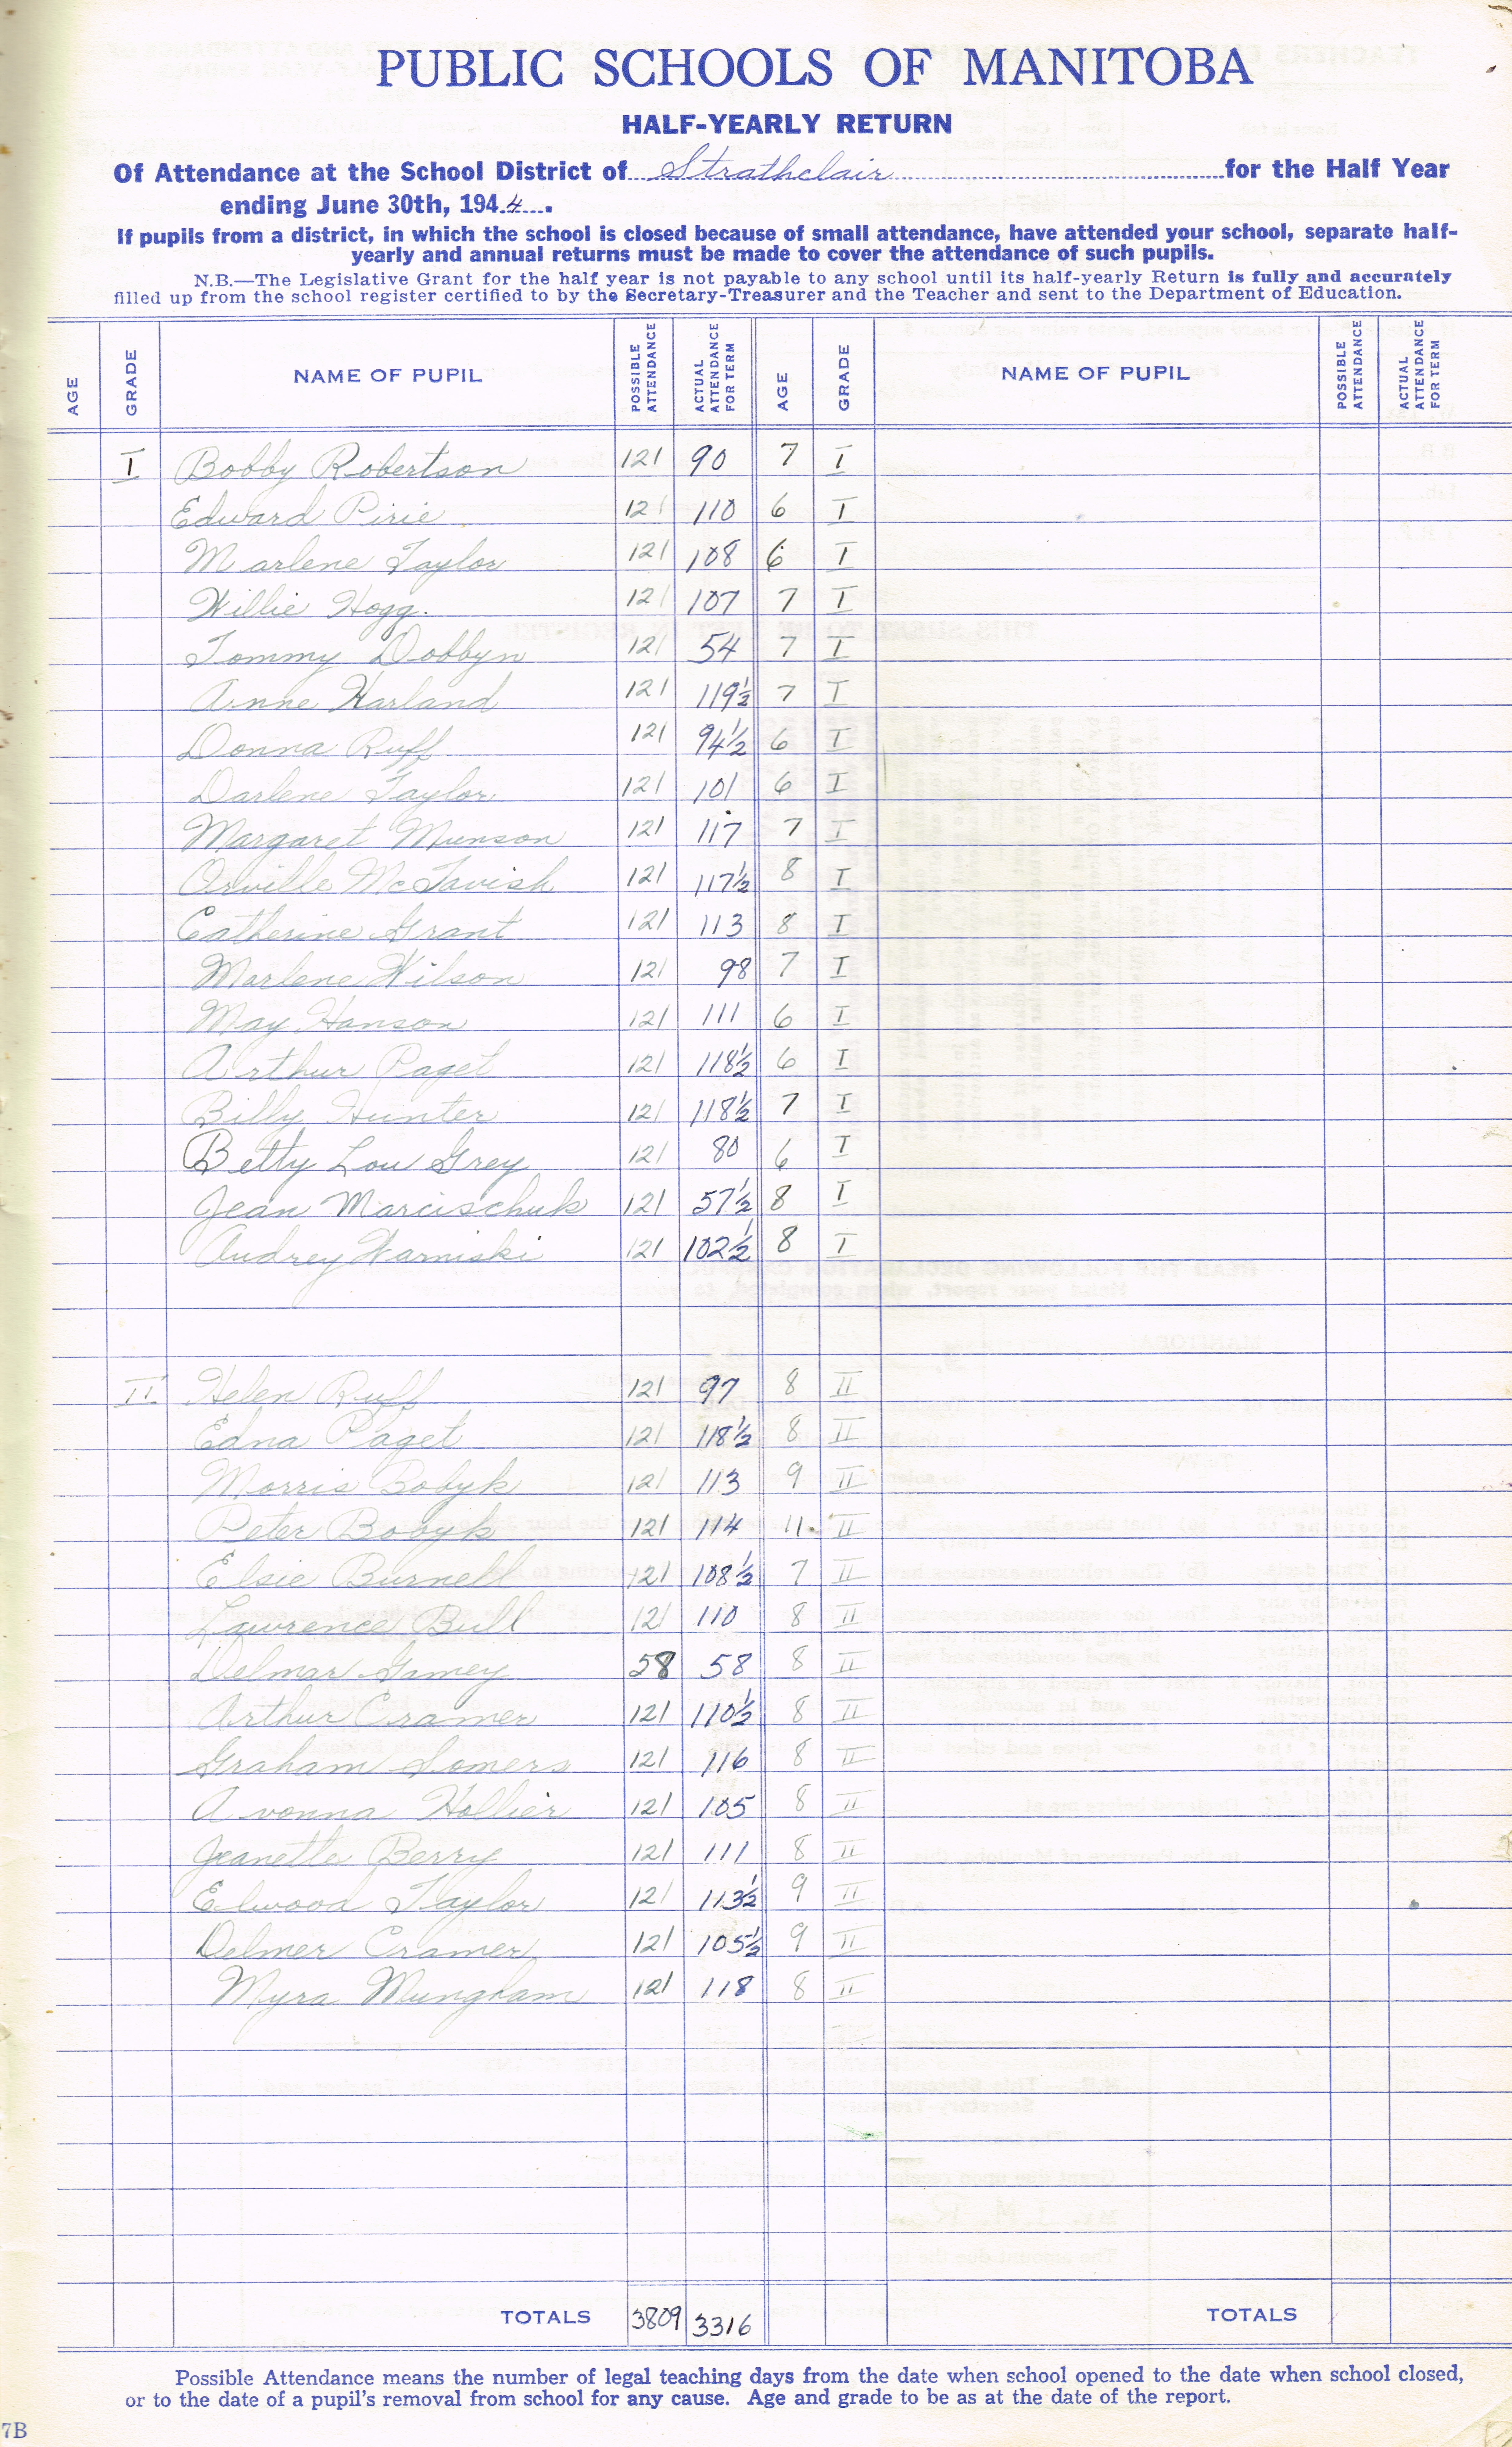 PUBLIC SCHOOLS OF MANITOBA
HALF-YEARLY RETURN
Of Attendance at the School District of Strathclair for the Half Year
ending June 30th, 1944.
If pupils from a district, in which the school is closed because of small attendance, have attended your school, separate half-
yearly and annual returns must be made to cover the attendance of such pupils.
N.B.—The Legislative Grant for the half year is not payable to any school until its half-yearly Return is fully and accurately
filled up from the school register certified to by the Secretary-Treasurer and the Teacher and sent to the Department of Education.
AGE GRADE NAME OF PUPIL POSSIBLE ATTENDANCE ACTUAL ATTENDANCE FOR TERM AGE GRADE NAME OF PUPIL POSSIBLE ATTENDANCE ACTUAL ATTENDANCE FOR TERM
I Bobby Robertson 121 90 7 I
Edward Pirie 121 110 6 I
Marlene Taylor 121 108 6 I
Willie Hogg. 121 107 7 I
Tommy Dobbyn 121 54 7 I
Anne Harland 121 119½ 7 I
Donna Ruff 121 94½ 6 I
Darlene Taylor 121 101 6 I
Margaret Munson 121 117 7 I
Orville McTavish 121 117½ 8 I
Catherine Grant 121 113 8 I
Marlene Wilson 121 98 7 I
May Hanson 121 111 6 I
Arthur Paget 121 118½ 6 I
Billy Hunter 121 118½ 7 I
Betty Lou Grey 121 80 6 I
Jean Marcischuk 121 57½ 8 I
Audrey Warniski 121 102½ 8 I
II. Helen Ruff 121 97 8 II
Edna Paget 121 118½ 8 II
Morris Bobyk 121 113 9 II
Peter Bobyk 121 114 11. II
Elsie Burnell 121 108½ 7 II
Lawrence Bull 121 110 8 II
Delmar Gamey 58 58 8 II
Arthur Cramer 121 110½ 8 II
Graham Somers 121 116 8 II
Avonna Hollier 121 105 8 II
Jeanette Berry 121 111 8 II
Elwood Taylor 121 113½ 9 II
Delmer Cramer 121 105½ 9 II
Myra Mungham 121 118 8 II
TOTALS 3809 3316 TOTALS
Possible Attendance means the number of legal teaching days from the date when school opened to the date when school closed,
or to the date of a pupil's removal from school for any cause. Age and grade to be as at the date of the report.
7B